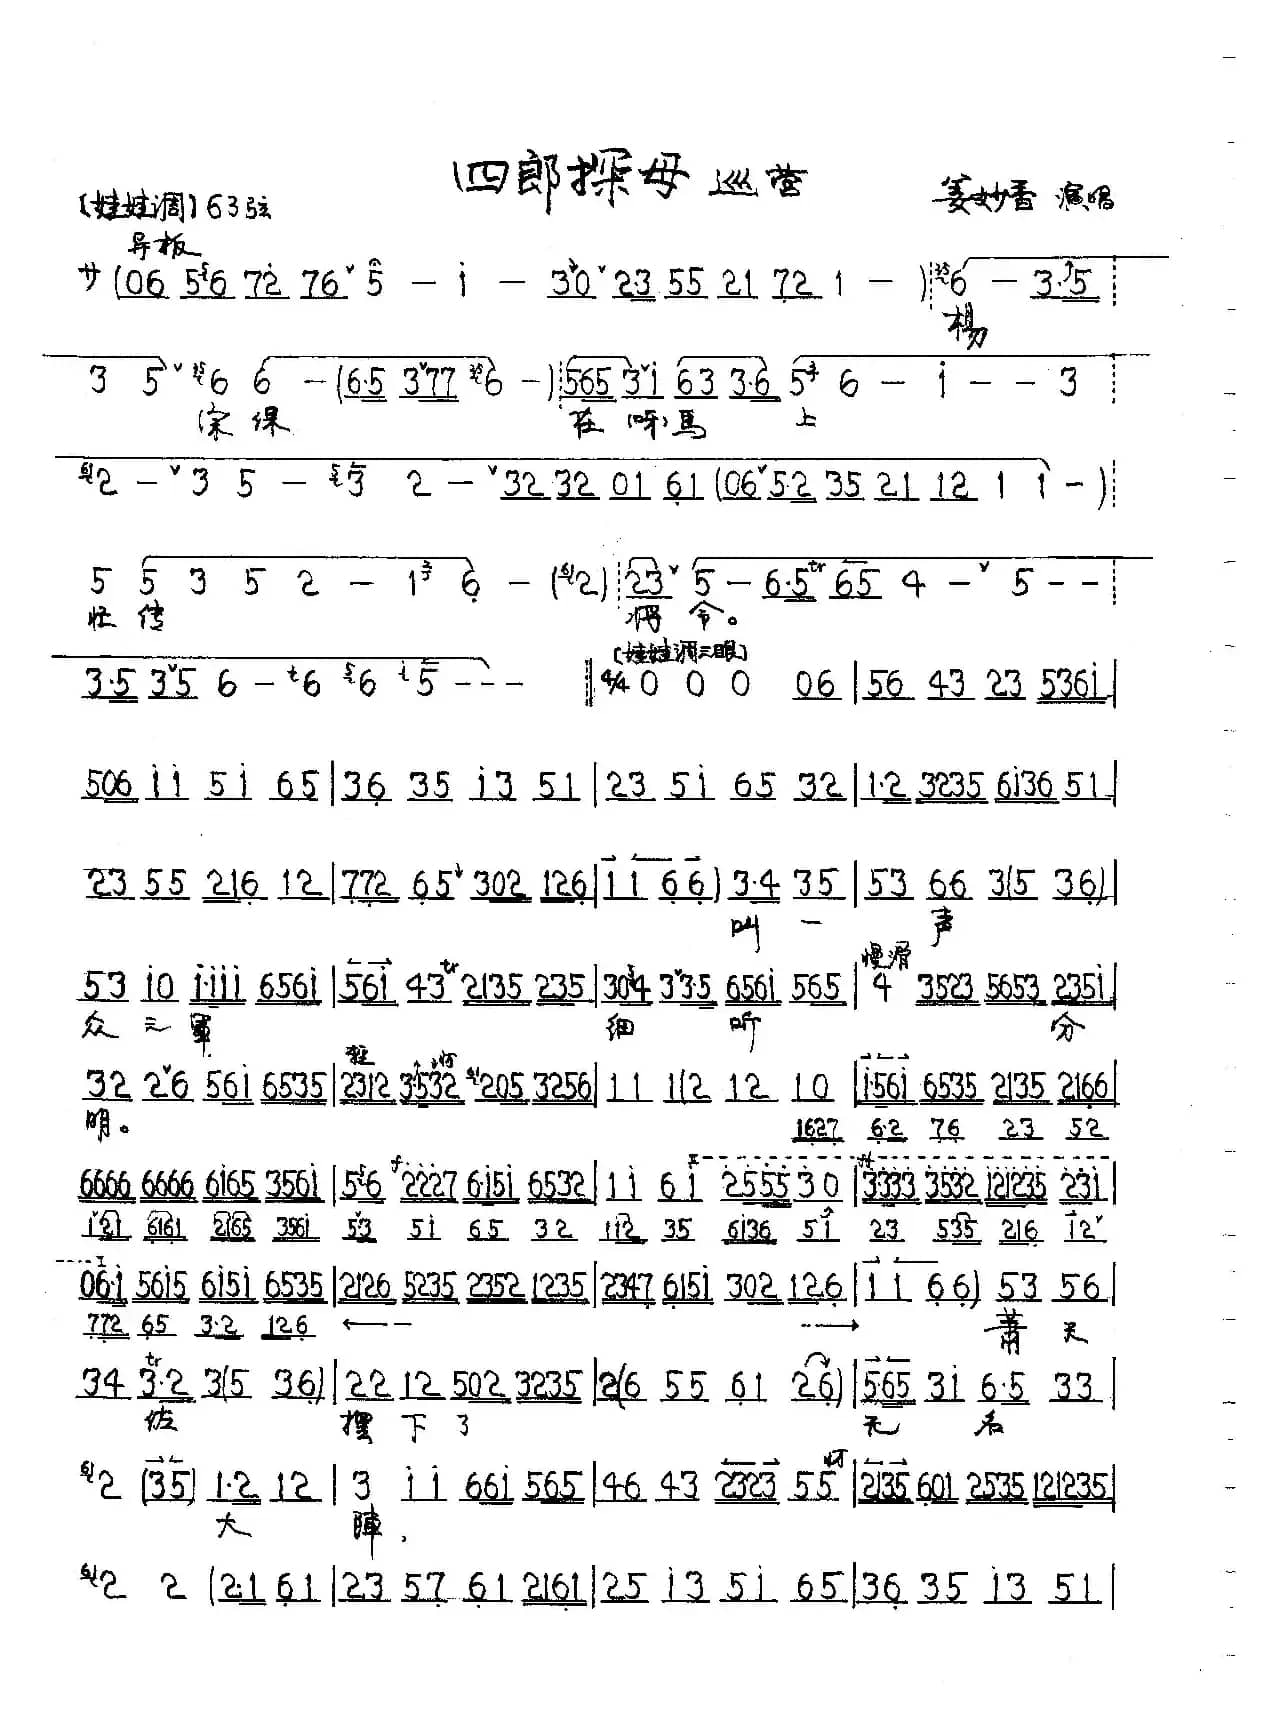 四郎探母 巡营
〔娃娃调〕63弦 姜妙香 演唱
导板
サ (06 56 72 76 5 — i — 30 23 55 21 72 1 — ) 6 — 3·5
杨
3 5 6 6 — (6·5 377 6 — ) 565 3i 63 3·6 5 6 — i — — 3
宗保 在(呀)馬 上
2 — 3 5 — 3 2 — 32 32 01 61 (06 5·2 35 21 12 1 1 — )
5 5 3 5 2 — 1 6 — (2) 23 5 — 6·5 65 4 — 5 — —
忙 传 将 令。
〔娃娃调三眼〕
3·5 35 6 — 6 6 5 — — — 4/4 0 0 0 06 | 56 43 23 536i |
506 ii 5i 65 | 36 35 i3 51 | 23 5i 65 32 | 1·2 3235 6i36 51 |
23 55 216 12 | 772 65 302 126 | 11 66) 3·4 35 | 53 66 3(5 36) |
叫 一 声
慢滑
53 i0 i·iii 656i | 56i 43 2135 235 | 304 33·5 656i 565 | 4 3523 5653 235i |
众 三 軍 细 听 分
32 26 56i 6535 | 2312 3532 205 3256 | 11 1(2 12 10 | i·56i 6535 2135 2166 |
明。 1627 6·2 76 23 52
6666 6666 6i65 356i | 56 2227 6i5i 6532 | ii 6i 2555 30 | 3333 3532 121235 23i |
i2i 6i6i 2i65 356i 53 5i 65 32 112 35 6i36 5i 23 535 216 12
06·i 56i5 6i5i 6535 | 2126 5235 2352 1235 | 2347 6i5i 302 126 | 11 66) 53 56 |
772 65 3·2 126 蕭 天
34 3·2 3(5 36) | 22 12 502 3235 | 2(6 55 61 26) | 565 3i 6·5 33 |
佐 摆 下 了 无 名
2 (35) 1·2 12 | 3 ii 66i 565 | 46 43 2323 55 | 2135 601 2535 121235 |
大 陣,
2 2 (2·1 61 | 23 57 61 2161 | 25 i3 5i 65 | 36 35 i3 51